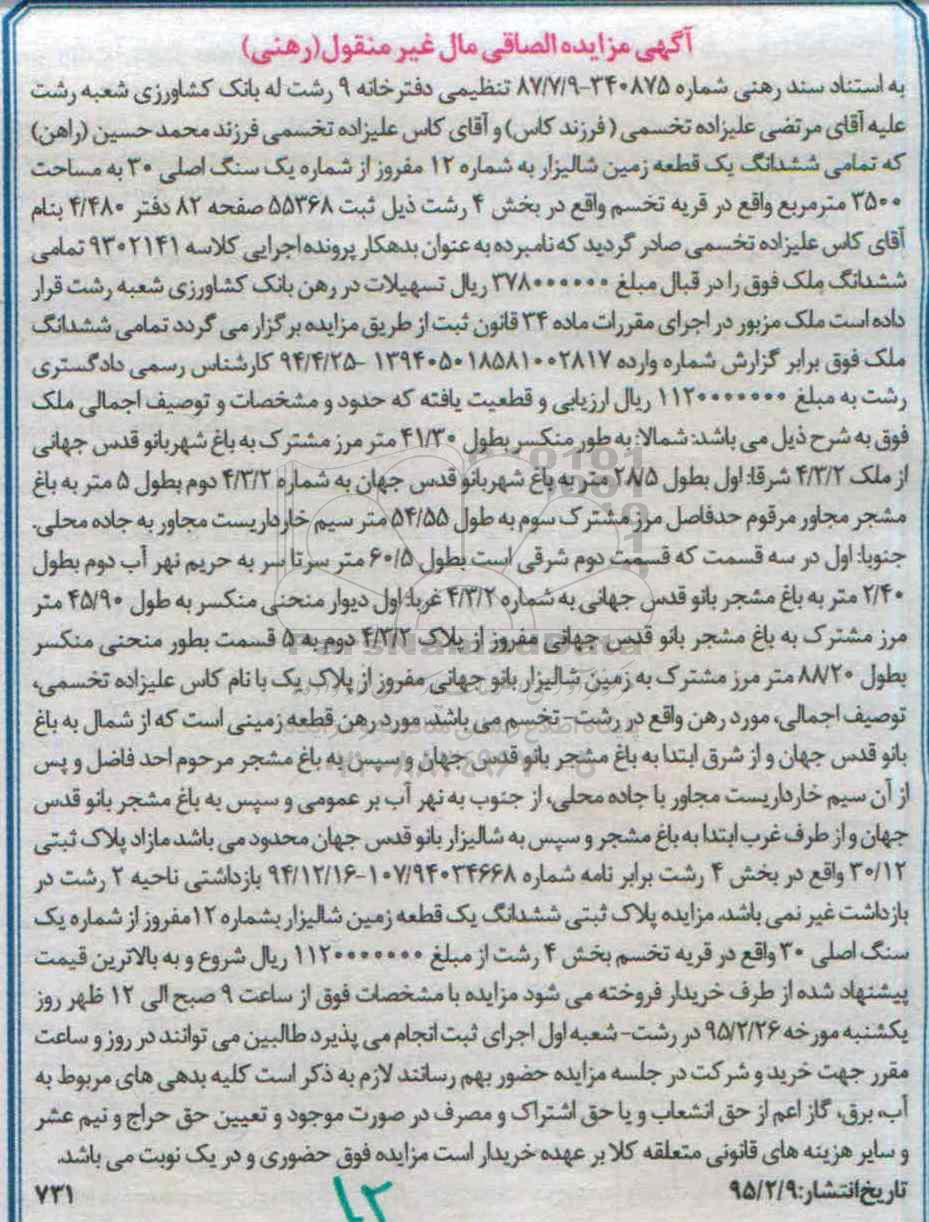 آگهی مزایده الصاقی مال غیر منقول(رهنی)
به استناد سند رهنی شماره ۳۴۰۸۷۵-۸۷/۷/۹ تنظیمی دفترخانه ۹ رشت له بانک کشاورزی شعبه رشت
علیه آقای مرتضی علیزاده تخسمی (فرزند کاس) و آقای کاس علیزاده تخسمی فرزند محمد حسین (راهن)
که تمامی ششدانگ یک قطعه زمین شالیزار به شماره ۱۲ مفروز از شماره یک سنگ اصلی ۳۰ به مساحت
۳۵۰۰ مترمربع واقع در قریه تخسم واقع در بخش ۴ رشت ذیل ثبت ۵۵۳۶۸ صفحه ۸۲ دفتر ۴/۴۸۰ بنام
آقای کاس علیزاده تخسمی صادر گردید که نامبرده به عنوان بدهکار پرونده اجرایی کلاسه ۹۳۰۲۱۴۱ تمامی
ششدانگ ملک فوق را در قبال مبلغ ۳۷۸۰۰۰۰۰۰ ریال تسهیلات در رهن بانک کشاورزی شعبه رشت قرار
داده است ملک مزبور در اجرای مقررات ماده ۳۴ قانون ثبت از طریق مزایده برگزار می گردد تمامی ششدانگ
ملک فوق برابر گزارش شماره وارده ۱۳۹۴۰۵۰۱۸۵۸۱۰۰۲۸۱۷ -۹۴/۴/۲۵ کارشناس رسمی دادگستری
رشت به مبلغ ۱۱۲۰۰۰۰۰۰۰ ریال ارزیابی و قطعیت یافته که حدود و مشخصات و توصیف اجمالی ملک
فوق به شرح ذیل می باشد: شمالا: به طور منکسر بطول ۴۱/۳۰ متر مرز مشترک به باغ شهربانو قدس جهانی
از ملک ۴/۳/۲ شرقا: اول بطول ۲۸/۵ متر به باغ شهربانو قدس جهان به شماره ۴/۳/۲ دوم بطول ۵ متر به باغ
مشجر مجاور مرقوم حدفاصل مرز مشترک سوم به طول ۵۴/۵۵ متر سیم خارداریست مجاور به جاده محلی.
جنوبا: اول در سه قسمت که قسمت دوم شرقی است بطول ۶۰/۵ متر سرتا سر به حریم نهر آب دوم بطول
۲/۴۰ متر به باغ مشجر بانو قدس جهانی به شماره ۴/۳/۲ غربا: اول دیوار منحنی منکسر به طول ۴۵/۹۰ متر
مرز مشترک به باغ مشجر بانو قدس جهانی مفروز از پلاک ۴/۳/۲ دوم به ۵ قسمت بطور منحنی منکسر
بطول ۸۸/۲۰ متر مرز مشترک به زمین شالیزار بانو جهانی مفروز از پلاک یک با نام کاس علیزاده تخسمی،
توصیف اجمالی، مورد رهن واقع در رشت- تخسم می باشد. مورد رهن قطعه زمینی است که از شمال به باغ
بانو قدس جهان و از شرق ابتدا به باغ مشجر بانو قدس جهان و سپس به باغ مشجر مرحوم احد فاضل و پس
از آن سیم خارداریست مجاور با جاده محلی، از جنوب به نهر آب بر عمومی و سپس به باغ مشجر بانو قدس
جهان و از طرف غرب ابتدا به باغ مشجر و سپس به شالیزار بانو قدس جهان محدود می باشد مازاد پلاک ثبتی
۳۰/۱۲ واقع در بخش ۴ رشت برابر نامه شماره ۱۰۷/۹۴۰۳۴۶۶۸-۹۴/۱۲/۱۶ بازداشتی ناحیه ۲ رشت در
بازداشت غیر نمی باشد. مزایده پلاک ثبتی ششدانگ یک قطعه زمین شالیزار بشماره ۱۲مفروز از شماره یک
سنگ اصلی ۳۰ واقع در قریه تخسم بخش ۴ رشت از مبلغ ۱۱۲۰۰۰۰۰۰۰ ریال شروع و به بالاترین قیمت
پیشنهاد شده از طرف خریدار فروخته می شود مزایده با مشخصات فوق از ساعت ۹ صبح الی ۱۲ ظهر روز
یکشنبه مورخه ۹۵/۲/۲۶ در رشت- شعبه اول اجرای ثبت انجام می پذیرد طالبین می توانند در روز و ساعت
مقرر جهت خرید و شرکت در جلسه مزایده حضور بهم رسانند لازم به ذکر است کلیه بدهی های مربوط به
آب، برق، گاز اعم از حق انشعاب و یا حق اشتراک و مصرف در صورت موجود و تعیین حق حراج و نیم عشر
و سایر هزینه های قانونی متعلقه کلا بر عهده خریدار است مزایده فوق حضوری و در یک نوبت می باشد.
تاریخ انتشار: ۹۵/۲/۹
۷۳۱
۱۲